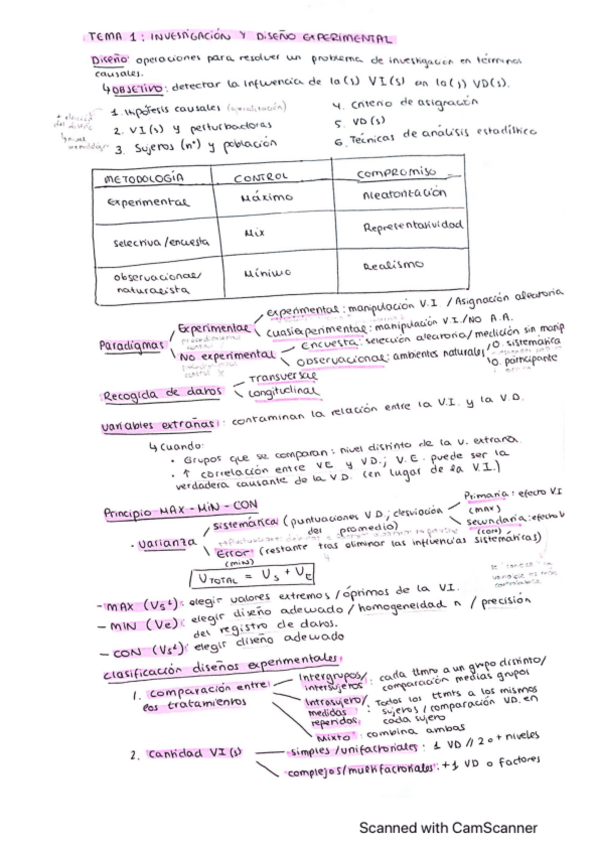 TEMA 1: INVESTIGACIÓN Y DISEÑO EXPERIMENTAL
Diseño: operaciones para resolver un problema de investigación en términos
causales.
↳ OBJETIVO: detectar la influencia de la(s) VI(s) en la(s) VD(s).
1. Hipótesis causales
2. VI(s) y perturbadoras
3. Sujeros (nº) y población
4. criterio de asignación
5. VD(s)
6. Técnicas de análisis estadístico
METODOLOGÍA CONTROL COMPROMISO
experimental Máximo Aleatorización
selectiva/encuesta Mix Representatividad
observacional/ Mínimo Realismo
naturalista
Paradigmas
Experimental
experimental: manipulación V.I / Asignación aleatoria
cuasiexperimental: manipulación V.I./NO A.A.
No experimental
Encuesta: selección aleatoria/medición sin manip
Observacional: ambientes naturales
O. sistemática
O. participante
Recogida de datos
Transversal
Longitudinal
Variables extrañas: contaminan la relación entre la V.I. y la V.D.
↳ Cuando:
• Grupos que se comparan: nivel distinto de la v. extraña.
• ↑ correlación entre VE y VD; V.E. puede ser la
verdadera causante de la V.D. (en lugar de la V.I.)
Principio MAX-MIN-CON
- Varianza
sistemática (puntuaciones V.D; desviación
del promedio)
Primaria: efecto VI
(MAX)
secundaria: efecto V
(CON)
Error (restante tras eliminar las influencias sistemáticas)
(MIN)
V TOTAL = Vs + Ve
- MAX (Vs¹): elegir valores extremos/óptimos de la V.I.
- MIN (Ve): elegir diseño adecuado/homogeneidad n / precisión
del registro de datos.
- CON (Vs²): elegir diseño adecuado
Clasificación diseños experimentales:
1. Comparación entre
los tratamientos
Intergrupos/
intersujetos:
cada ttmto a un grupo distinto/
comparación medias grupos
Intrasujeto/
medidas
repetidas:
Todos los ttmts a los mismos
sujetos / comparación VD. en
cada sujeto
Mixto: combina ambas
2. Cantidad VI(s)
simples/unifactoriales: 1 VD // 2 o + niveles
complejos/multifactoriales: +1 VD o factores
Scanned with CamScanner